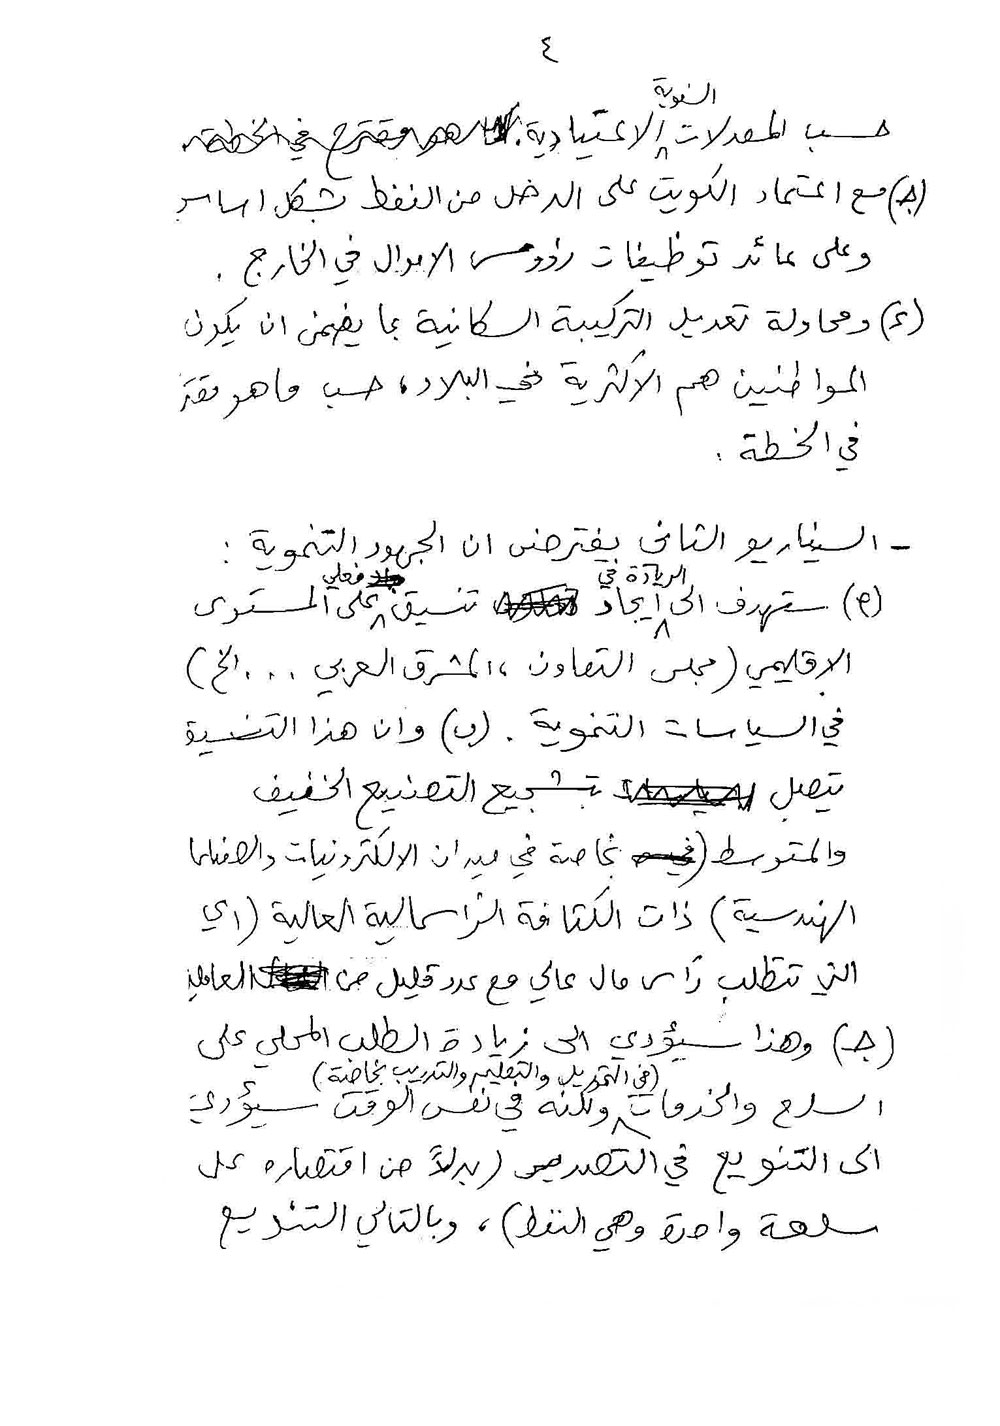 ٤
السنوية
حسب المعدلات الاعتيادية. كما هو مقترح في الخطة.
(جـ) مع اعتماد الكويت على الدخل من النفط بشكل اساسي
وعلى عائد توظيفات رؤوس الاموال في الخارج .
(د) ومحاولة تعديل التركيبة السكانية بما يضمن ان يكون
المواطنين هم الاكثرية في البلاد، حسب ما هو مقتر
في الخطة .
- السيناريو الثاني يفترض ان الجهود التنموية :
الزيادة في فعلي
(أ) ستهدف الى ايجاد تنسيق على المستوى
الاقليمي (مجلس التعاون ، المشرق العربي ... الخ)
في السياسات التنموية . (ب) وان هذا التنسيق
يتصل بتشجيع التصنيع الخفيف
والمتوسط (بخاصة في ميدان الالكترونيات والصناعات
الهندسية) ذات الكثافة الرأسمالية العالية (اي
التي تتطلب رأس مال عالي مع عدد قليل من العاملين
(جـ) وهذا سيؤدي الى زيادة الطلب المحلي على
(في التمويل والتعليم والتدريب بخاصة)
السلع والخدمات ولكنه في نفس الوقت سيؤدي
الى التنويع في التصدير (بدلاً من اقتصاره على
سلعة واحدة وهي النفط) ، وبالتالي التنويع